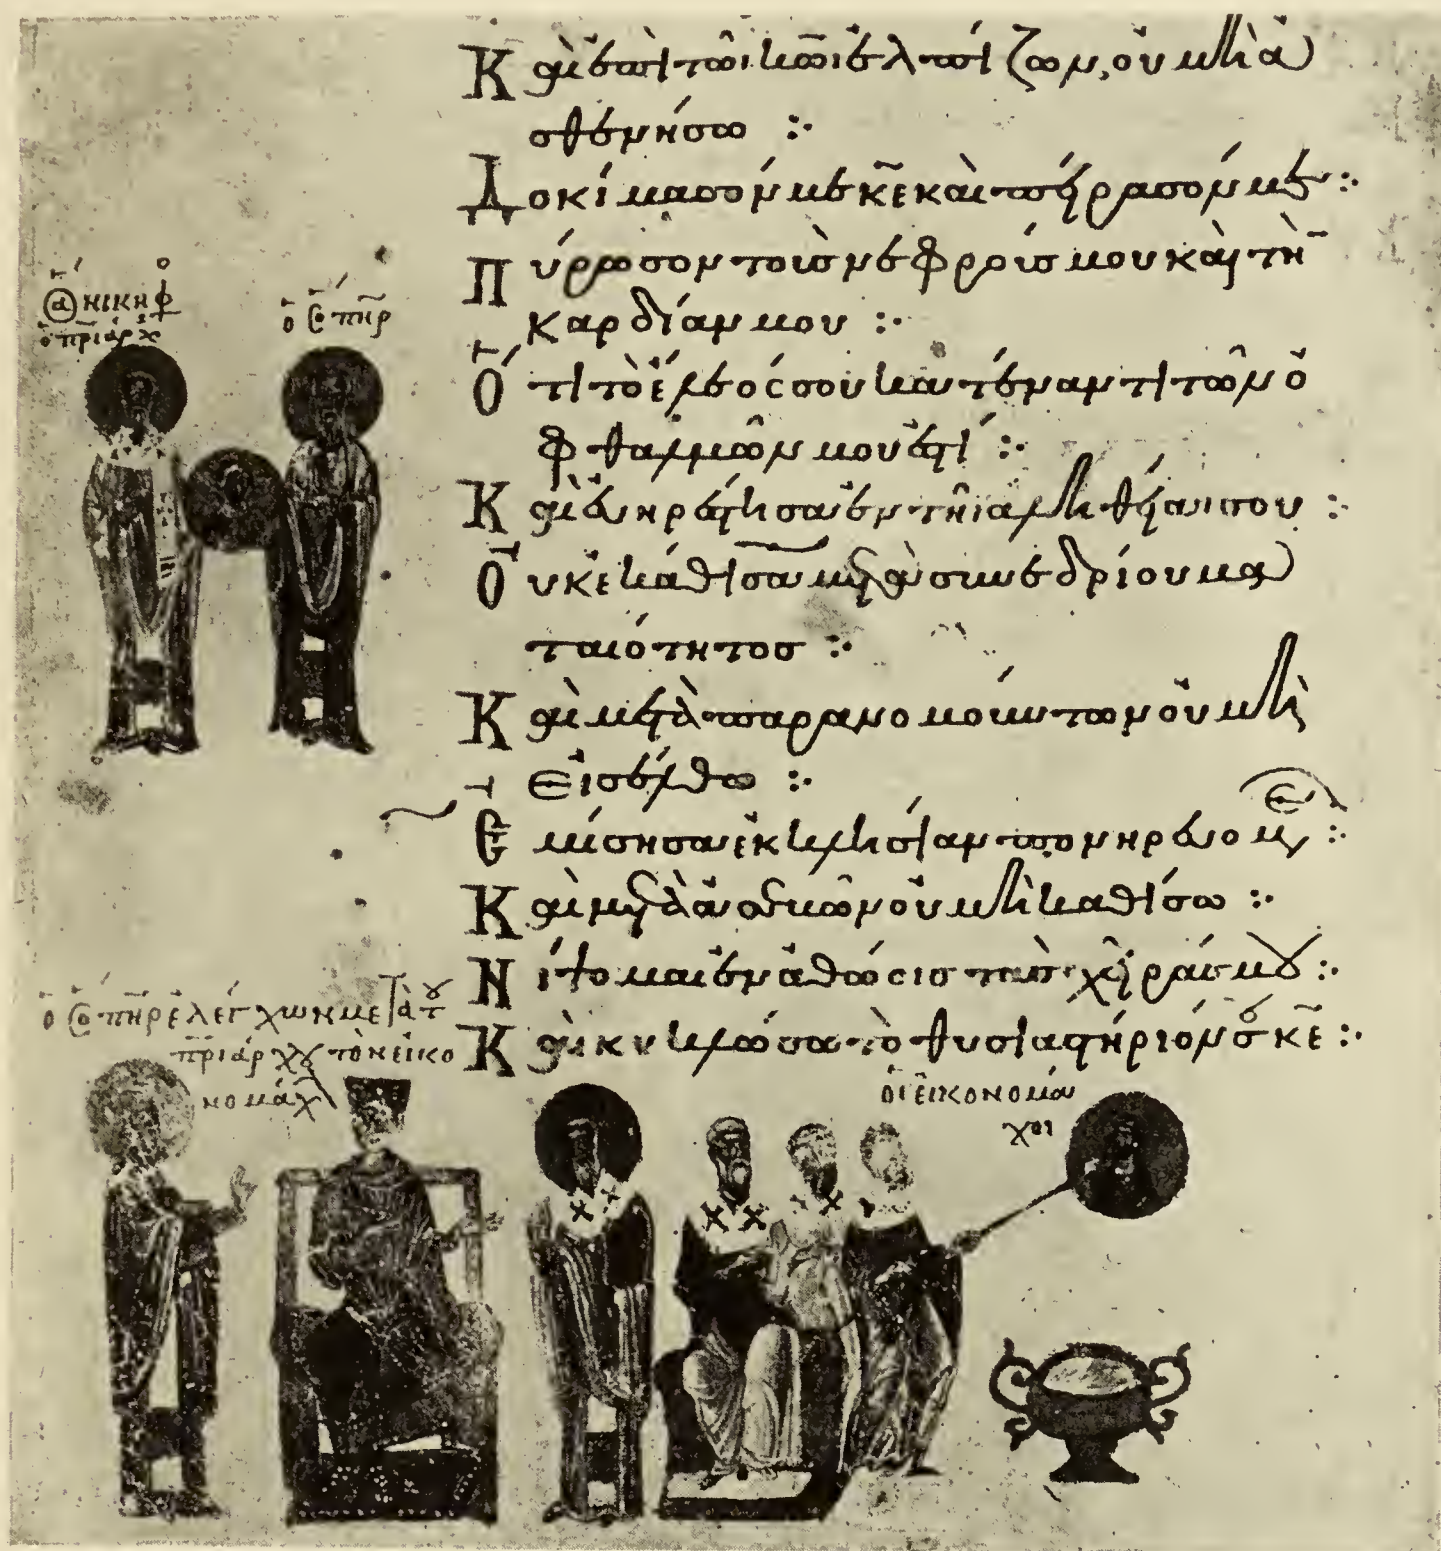 Καὶ ἐπὶ τῶι κῶι ἐλπίζων, οὐ μὴ ἀ
σθενήσω :·
Δοκίμασόν με κε καὶ πείρασόν με :·
Πύρωσον τοὺσ νεφρούσ μου καὶ τὴν
καρδίαν μου :·
Ὅτι τὸ ἔλεός σου κατέναντι τῶν ὀ
φθαλμῶν μου ἐστί :·
Καὶ εὐηρέστησα ἐν τῆι ἀληθείαι σου :·
Οὐκ ἐκάθισα μετὰ συνεδρίου μα
ταιότητοσ :·
Καὶ μετὰ παρανομούντων οὐ μὴ
εἰσέλθω :·
Ἐμίσησα ἐκκλησίαν πονηρευομέ :·
Καὶ μετὰ ἀσεβῶν οὐ μὴ καθίσω :·
Νίψομαι ἐν ἀθώοισ τὰσ χεῖράσ μου :·
Καὶ κυκλώσω τὸ θυσιαστήριόν σου κε :·
ὁ ἅ νικηφο
ὁ πριάρχ
ὁ ὅ πηρ
ὁ ὅ πηρ ἐλέγχων μετὰ του
πριάρχου τὸν εἰκο
νομάχ
οἱ εἰκονομά
χοι